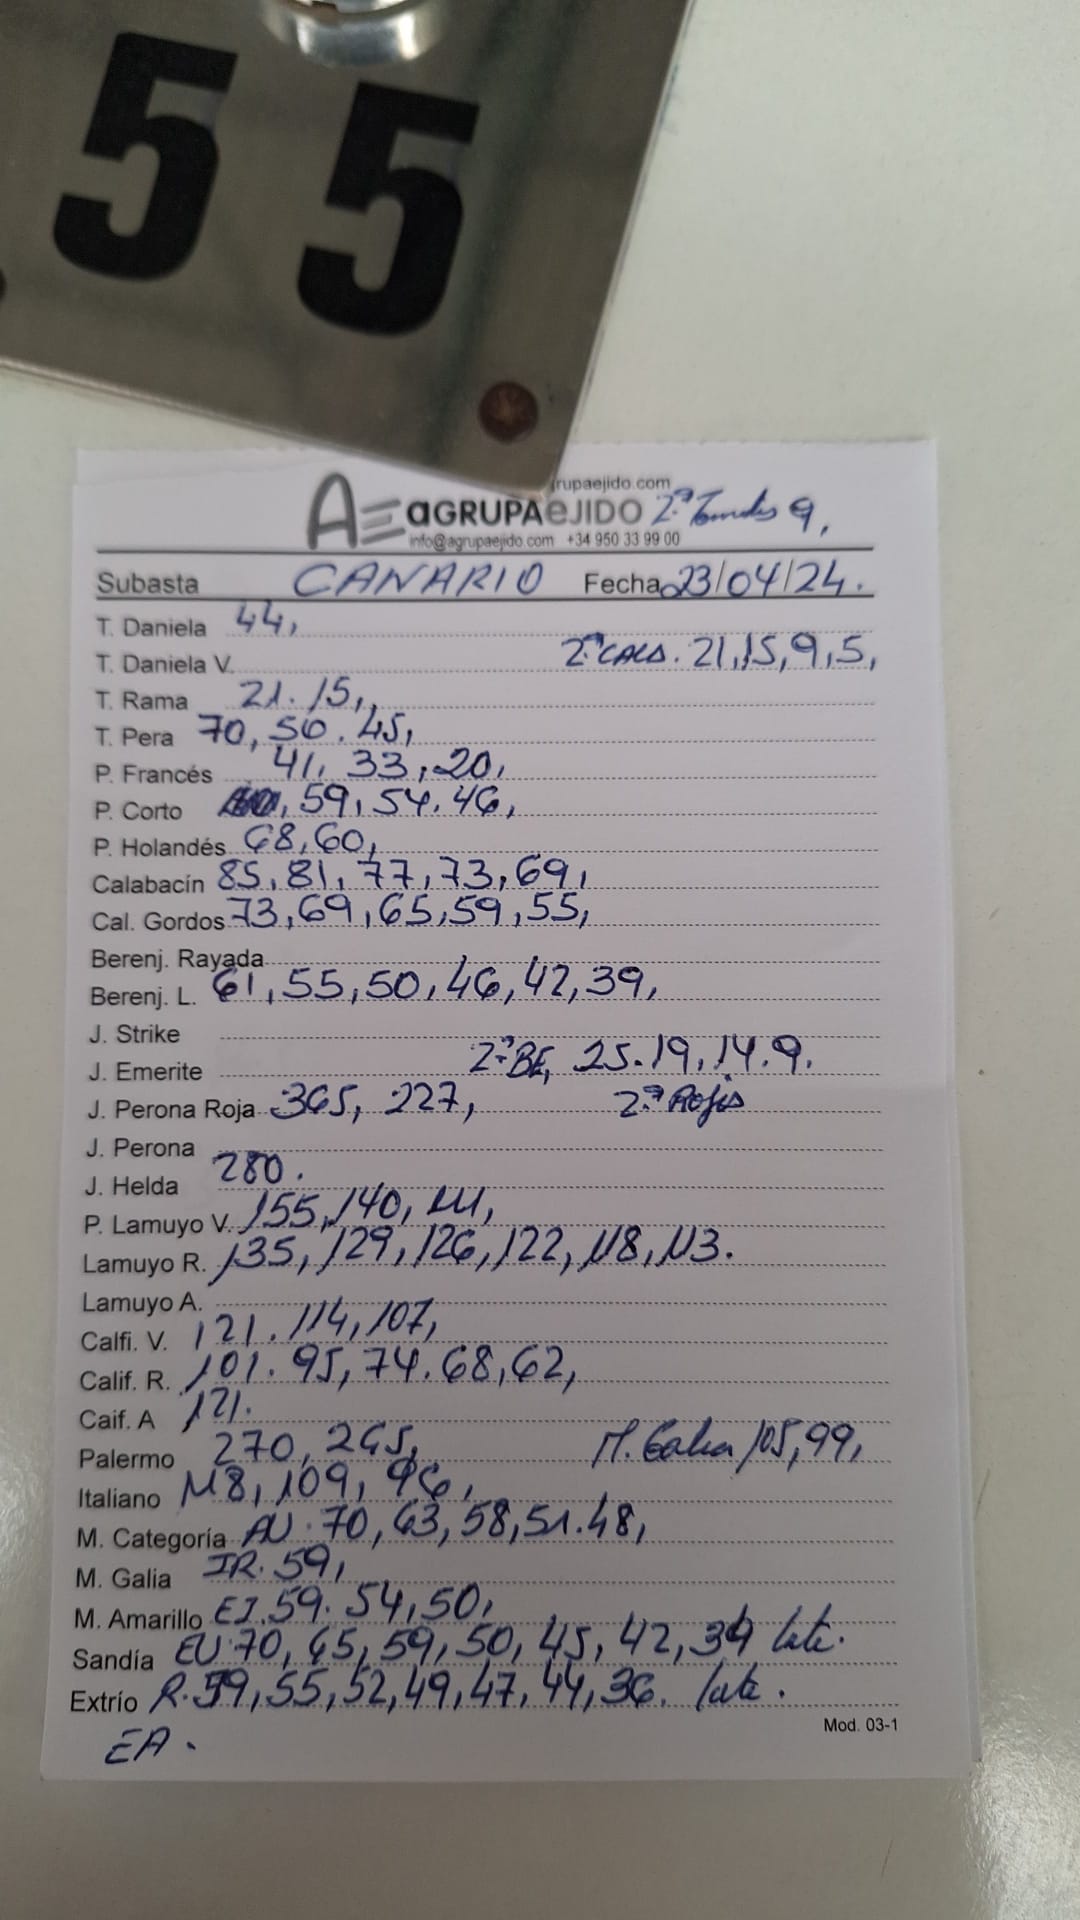 55
rupaejido.com
AE aGRUPAeJIDO 2ª Tomates 9,
info@agrupaejido.com +34 950 33 99 00
Subasta CANARIO Fecha 23/04/24.
T. Daniela 44,
T. Daniela V. 2ª CALA. 21, 15, 9, 5,
T. Rama 21. 15,,
T. Pera 70, 50. 45,
P. Francés 41, 33, 20,
P. Corto , 59, 54. 46,
P. Holandés 68, 60,
Calabacín 85, 81, 77, 73, 69,
Cal. Gordos 73, 69, 65, 59, 55,
Berenj. Rayada
Berenj. L. 61, 55, 50, 46, 42, 39,
J. Strike
J. Emerite 2ª BE, 25. 19, 14. 9.
J. Perona Roja 365, 227, 2ª Rojis
J. Perona
J. Helda 280.
P. Lamuyo V. 155, 140, 111,
Lamuyo R. 135, 129, 126, 122, 118, 113.
Lamuyo A.
Calfi. V. 121. 114, 107,
Calif. R. 101. 95, 74. 68, 62,
Caif. A 121.
Palermo 270, 265, M. Galia 105, 99,
Italiano 118, 109, 96,
M. Categoría AU. 70, 63, 58, 51. 48,
M. Galia IR. 59,
M. Amarillo EJ. 59. 54, 50,
Sandía EU 70, 65, 59, 50, 45, 42, 39 late.
Extrío R. 59, 55, 52, 49, 47, 44, 36. late.
Mod. 03-1
EA.